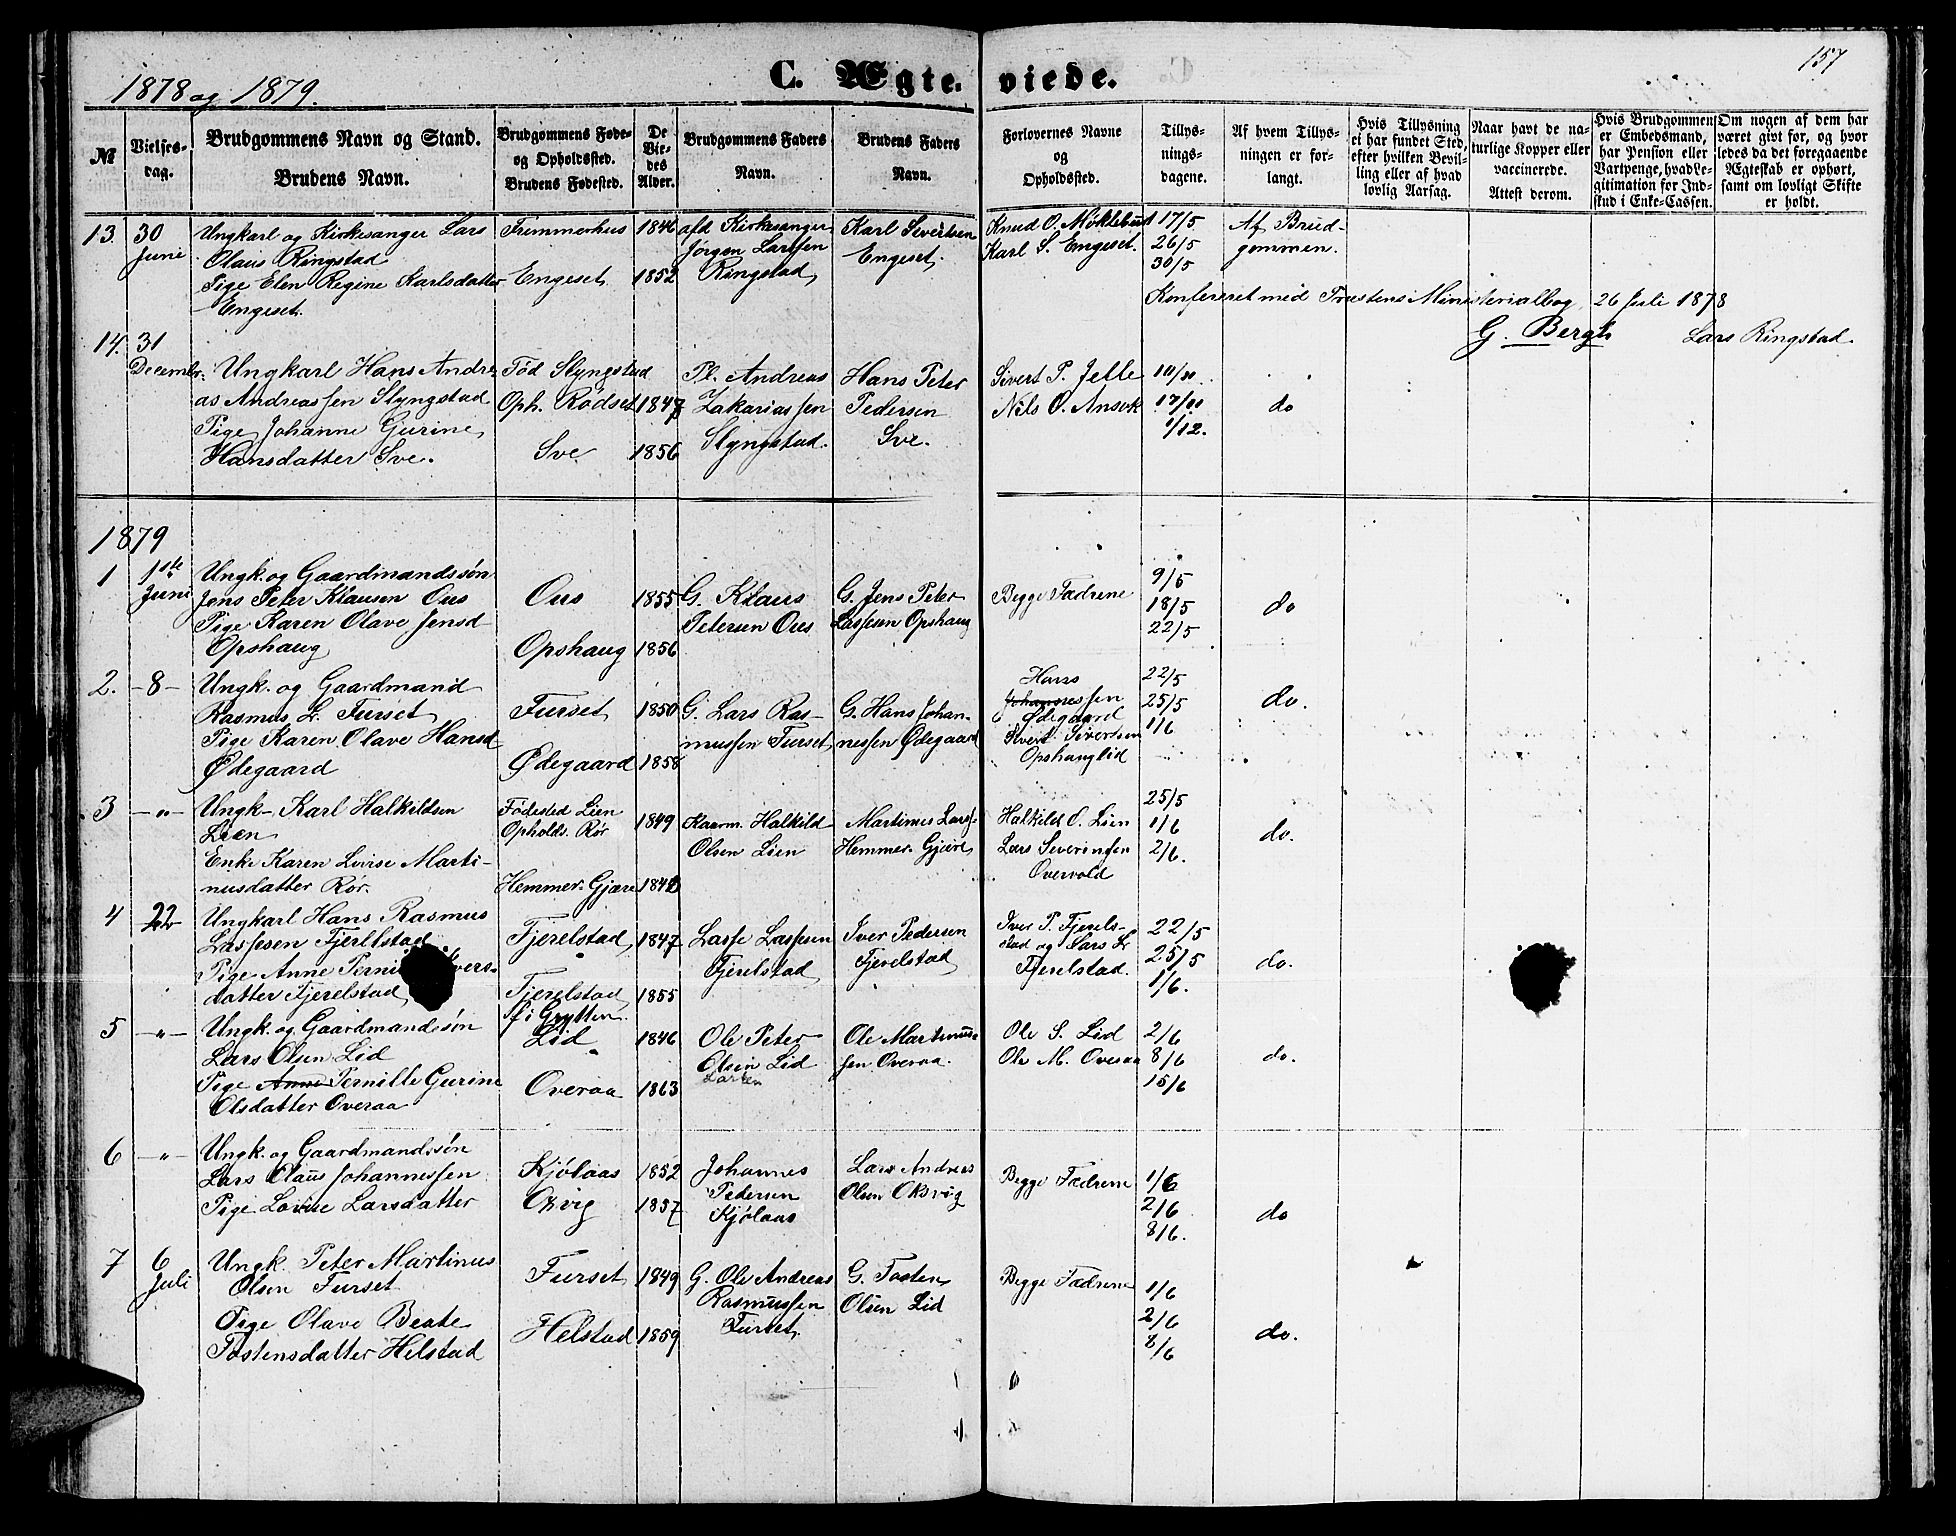 1878 og 1879.
C. Ægte- viede.
157
№
Vielses-
dag.
Brudgommens Navn og Stand.
Brudens Navn.
Brudgommens Føde-
og Opholdssted.
Brudens Fødested.
De
Vie-
des
Alder.
Brudgommens Faders
Navn.
Brudens Faders
Navn.
Forlovernes Navne
og
Opholdssted.
Tillys-
nings-
dagene.
Af hvem Tillys-
ningen er for-
langt.
Hvis Tillysning
ei har fundet Sted,
efter hvilken Bevil-
ling eller af hvad
lovlig Aarsag.
Naar havt de na-
turlige Kopper eller
vaccinerede.
Attest derom.
Hvis Brudgommen
er Embedsmand,
har Pension eller
Vartpenge, hvad Le-
gitimation for Ind-
skud i Enke-Cassen.
Om nogen af dem har
været givt før, og hvor
ledes da det foregaaende
Ægteskab er ophørt,
samt om lovligt Skifte
er holdt.
13. 30
Juni
Ungkarl og Kirkesanger Lars
Olaus Ringstad
Pige Elen Regine Karlsdatter
Engeset.
Frimmerhus
Engeset
1846
1852
afd Kirkesanger
Jørgen Larssen
Ringstad
Karl Sivertsen
Engeset.
Knud O. Møklebust
Karl S. Engeset.
17/5
26/5
30/5
Af Brud-
gommen.
Konfereret med Præstens Ministerialbog 26 Juli 1878
G. Bergh Lars Ringstad.
14. 31
December
Ungkarl Hans Andre-
as Andreassen Slyngstad
Pige Johanne Gurine
Hansdatter Sve.
Fød Slyngstad
Oph. Rødset
Sve
1847
1856
Pl. Andreas
Zakariassen
Slyngstad.
Hans Peter
Pedersen
Sve.
Sivert P. Jelle
Nils O. Ansok
10/11
17/11
1/12.
do
1879
1 1ste
Juni
Ungk. og Gaardmandssøn
Jens Peter Klausen Ous
Pige Karen Olave Jensd
Opshaug
Ous
Opshaug
1855
1856
G. Klaus
Petersen Ous
G. Jens Peter
Lassesen Opshaug
Begge Fædrene
9/5
18/5
22/5
do
2. -8-
Ungk. og Gaardmand
Rasmus L. Furset
Pige Karen Olave Hansd
Ødegaard
Furset
Ødegaard
1850
1858
G. Lars Ras-
mussen Furset
G. Hans Johan-
nessen Ødegaard
Hans
Johannessen
Ødegaard
Sivert Sivertsen
Opshauglid
22/5
25/5
1/6
do.
3 -"-
Ungk- Karl Halkildsen
Lien
Enke Karen Lovise Marti-
nusdatter Rør.
Fødested Lien
Opholds. Rør
Hemmer. Gjære
1849
Kaarm. Halkild
Olsen Lien
Martinus Lars-
Hemmer. Gjære
Halkild O. Lien
Lars Severinsen
Overvold
25/5
1/6
2/6.
do.
4 22
Ungkarl Hans Rasmus
Lassesen Fjerllstad
Pige Anne Pernil Ivers-
datter Fjerelstad
Fjerelstad
Fjerelstad
1847
1855
Lasse Lassesen
Fjerelstad
Iver Pedersen
Fjerelstad
Iver P. Fjerels-
stad og Lars L.
Fjerelstad.
22/5
25/5
1/6.
do.
5 -"-
Ungk. og Gaardmandssøn
Lars Olsen Lid
Pige Anne Pernille Gurine
Olsdatter Overaa
f. i Grytten.
Lid
Overaa
1846
1863
Ole Peter
Olsen Lid
Larsen
Ole Martinus-
sen Overaa.
Ole S. Lid
Ole M. Overaa
2/6
8/6
15/6
do.
6 -"-
Ungk. og Gaardmandssøn
Lars Olaus Johannessen
Pige Lovise Larsdatter
Kjølaas
Oxvig
1852
1857
Johannes
Pedersen
Kjølaas
Lars Andreas
Olsen Oksvig
Begge Fædrene
1/6
2/6
8/6.
do
7 6
Juli
Ungk. Peter Martinus
Olsen Furset
Pige Olave Beate
Tostensdatter Helstad
Furset
Helstad
1849
1859
G. Ole Andreas
Rasmussen
Furset.
G. Tosten
Olsen Lid
Begge Fædrene
1/6
2/6
8/6
do.